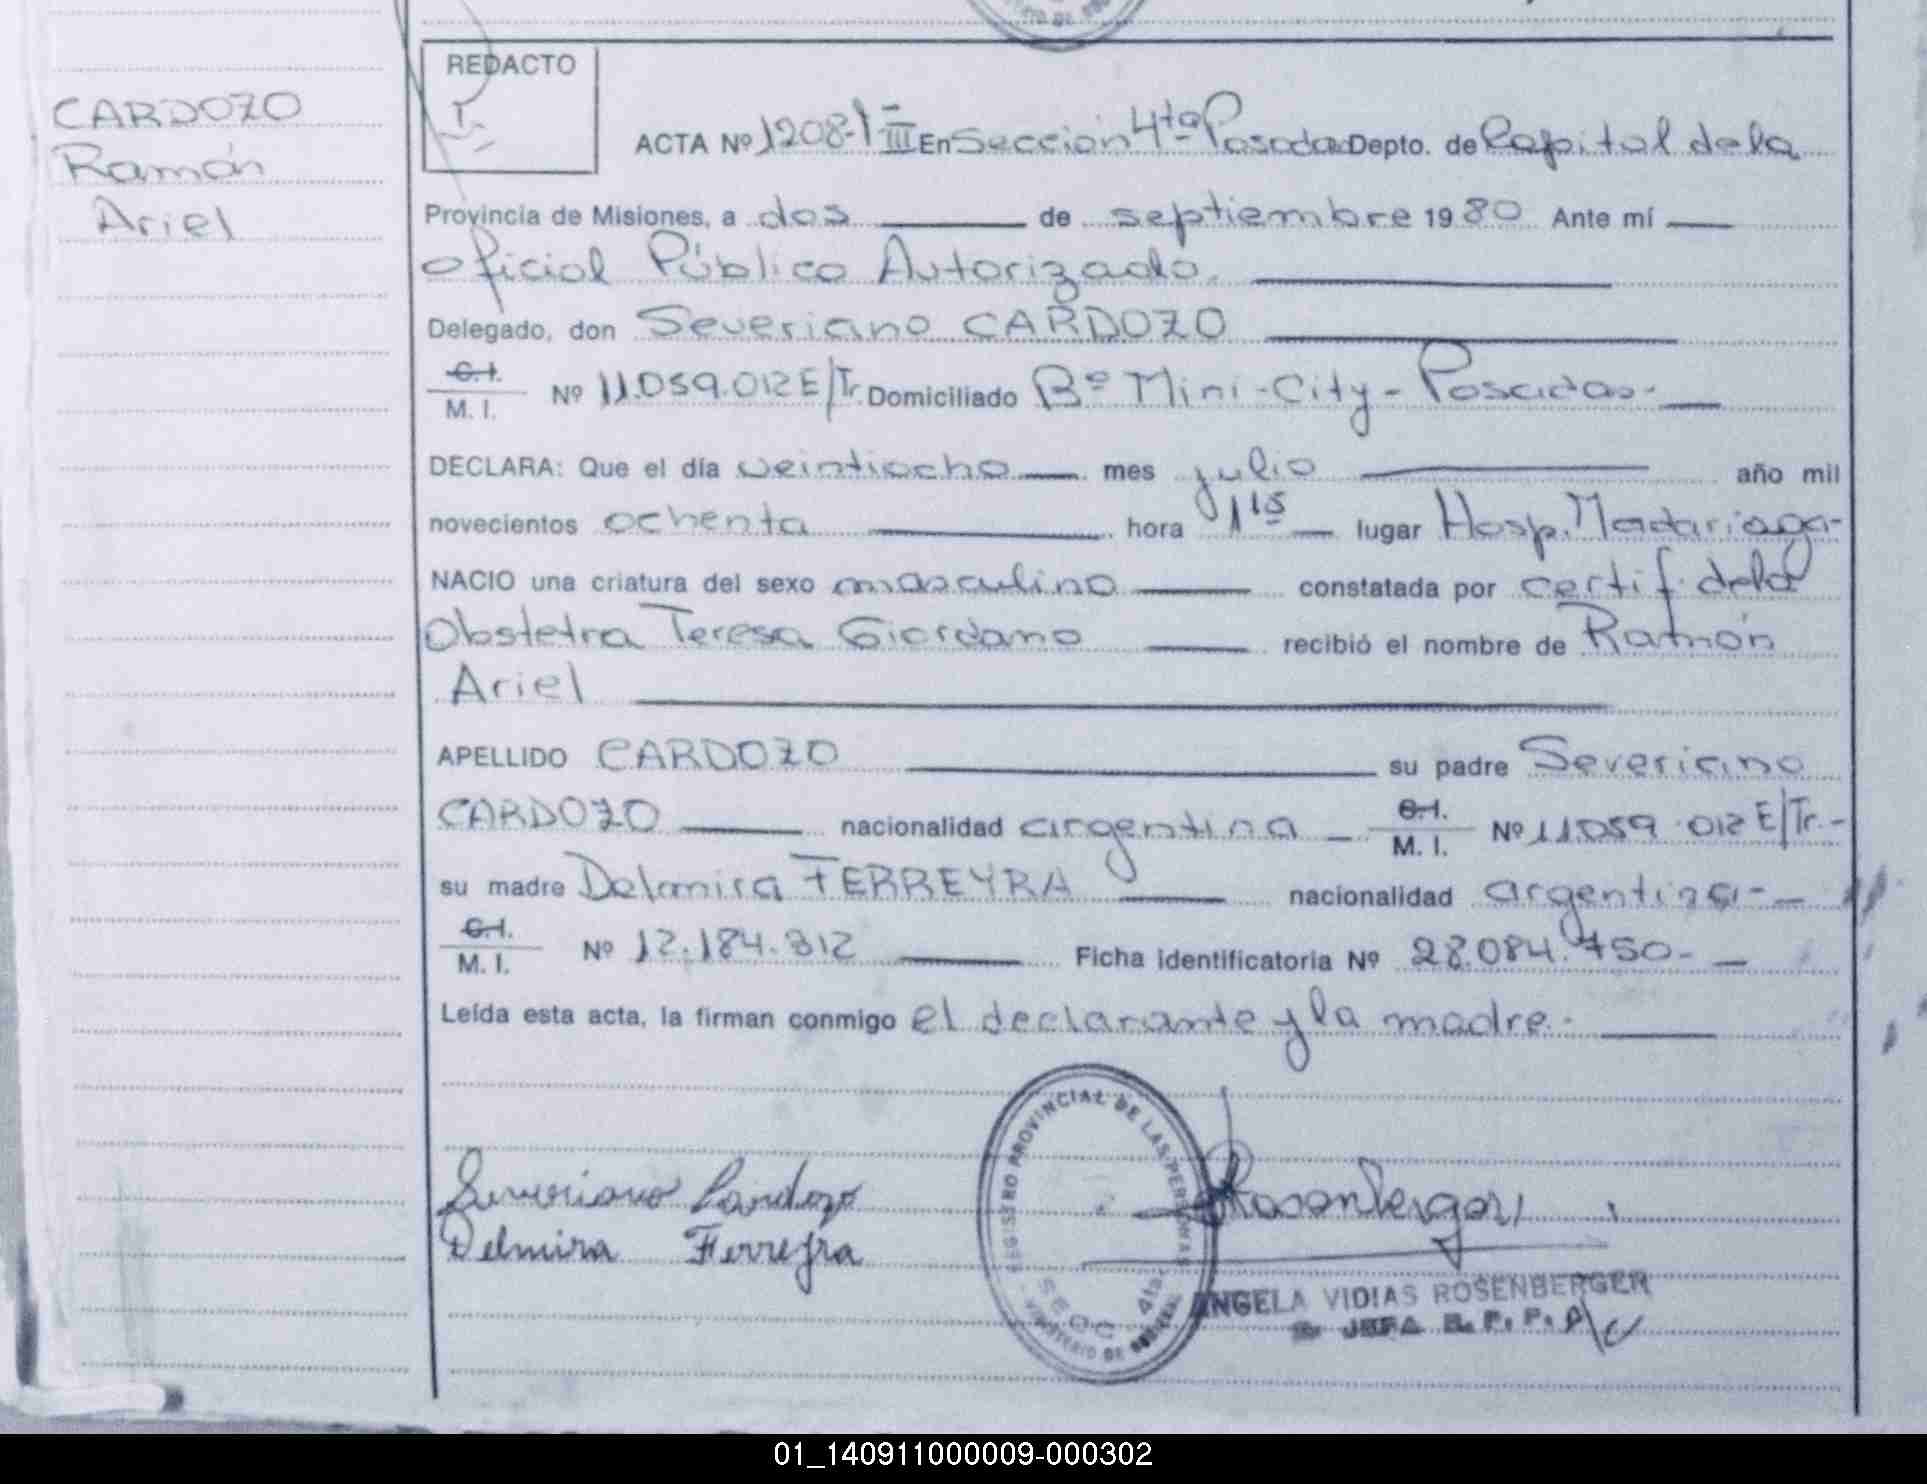 CARDOZO
Ramón
Ariel
REDACTO
ACTA Nº 1208-T III En Sección 4ta Posadas Depto. de Capital de la
Provincia de Misiones, a dos de septiembre 1980 Ante mí
Oficial Público Autorizado.
Delegado, don Severiano CARDOZO
C.I.
M. I. Nº 11.059.012 E/Tr. Domiciliado Bº Mini-City-Posadas-
DECLARA: Que el día veintiocho mes julio año mil
novecientos ochenta hora 1 15 lugar Hosp. Madariaga-
NACIO una criatura del sexo masculino constatada por certif. de la
Obstetra Teresa Giordano recibió el nombre de Ramón
Ariel
APELLIDO CARDOZO su padre Severiano
CARDOZO nacionalidad argentina C.I.
M. I. Nº 11.059.012 E/Tr.-
su madre Delmira FERREYRA nacionalidad argentina-
C.I.
M. I. Nº 12.184.312 Ficha identificatoria Nº 28.084.750-
Leída esta acta, la firman conmigo el declarante y la madre.-
Severiano Cardozo
Delmira Ferreyra
REGISTRO PROVINCIAL DE LAS PERSONAS
SECC 4ta.
MINISTERIO DE
Rosenberger
ANGELA VIDIAS ROSENBERGER
JEFA R. P. P. A/C
01_140911000009-000302